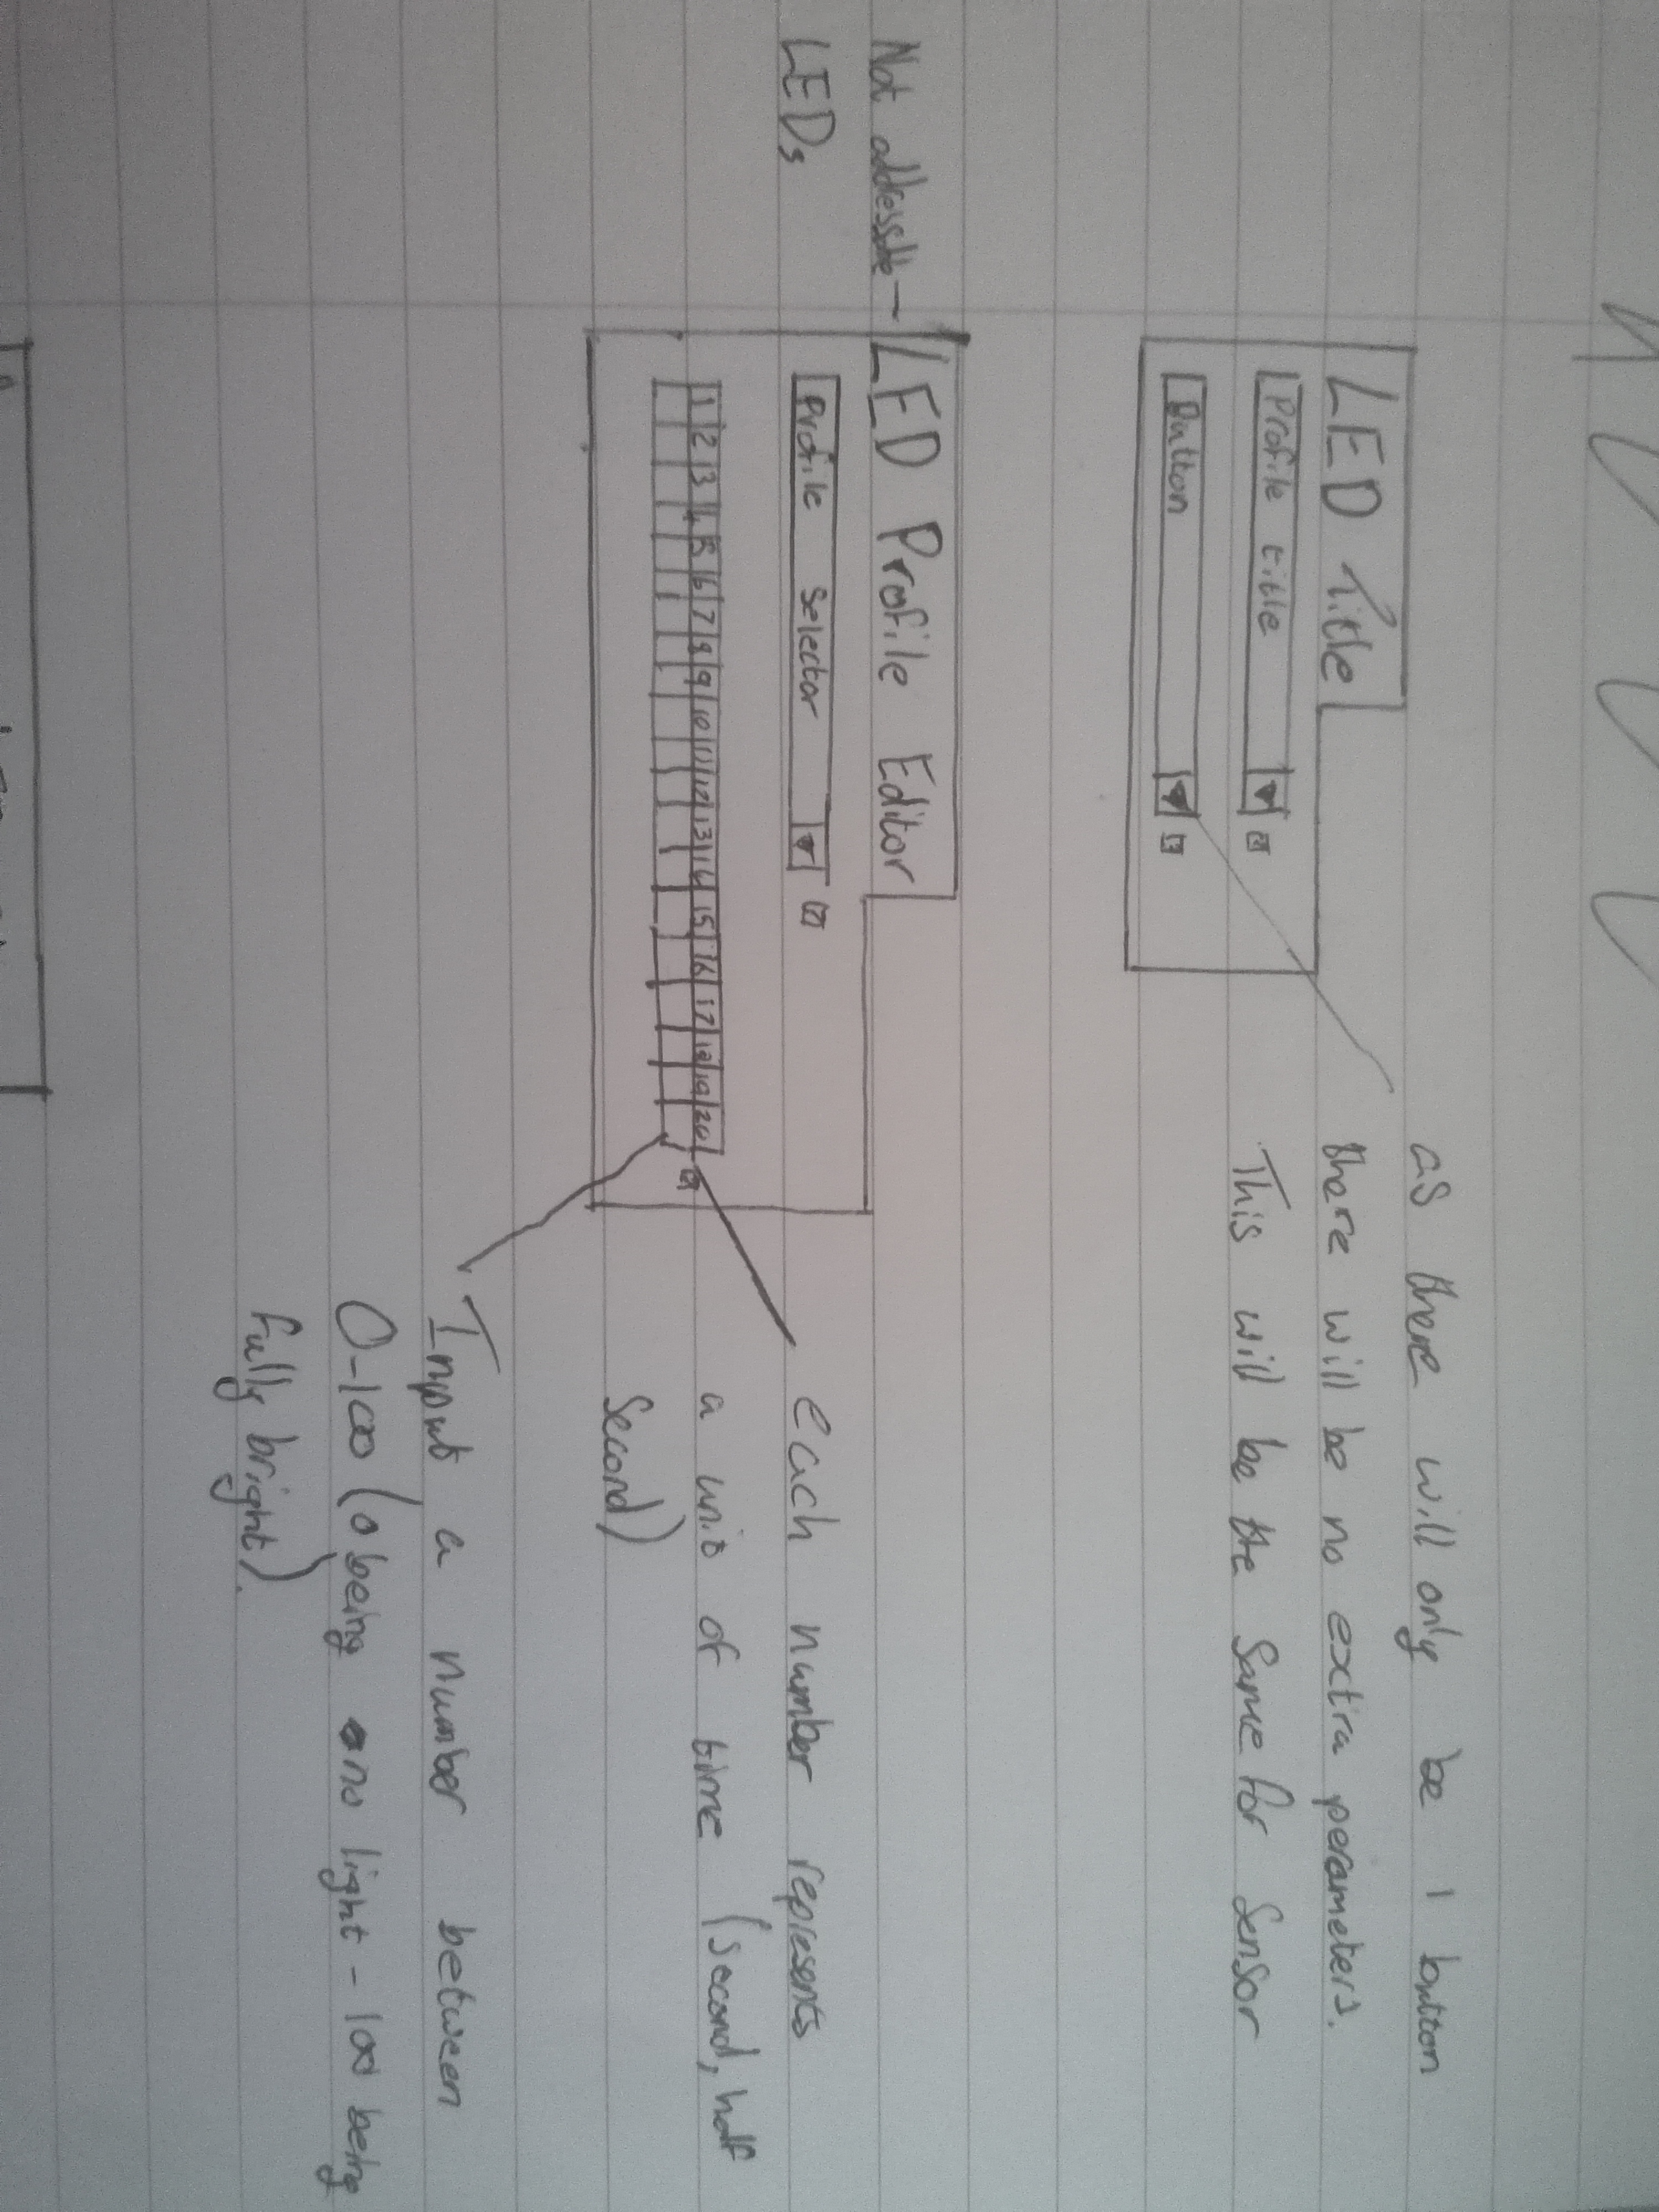 as there will only be 1 button
there will be no extra perameters.
This will be the same for Sensor
LED Title
Profile title
Button
Not addressable
LEDs
LED Profile Editor
Profile Selector
1 2 3 4 5 6 7 8 9 10 11 12 13 14 15 16 17 18 19 20
each number represents
a unit of time (second, half
Second)
Input a number between
0-100 (0 being no light - 100 being
fully bright).